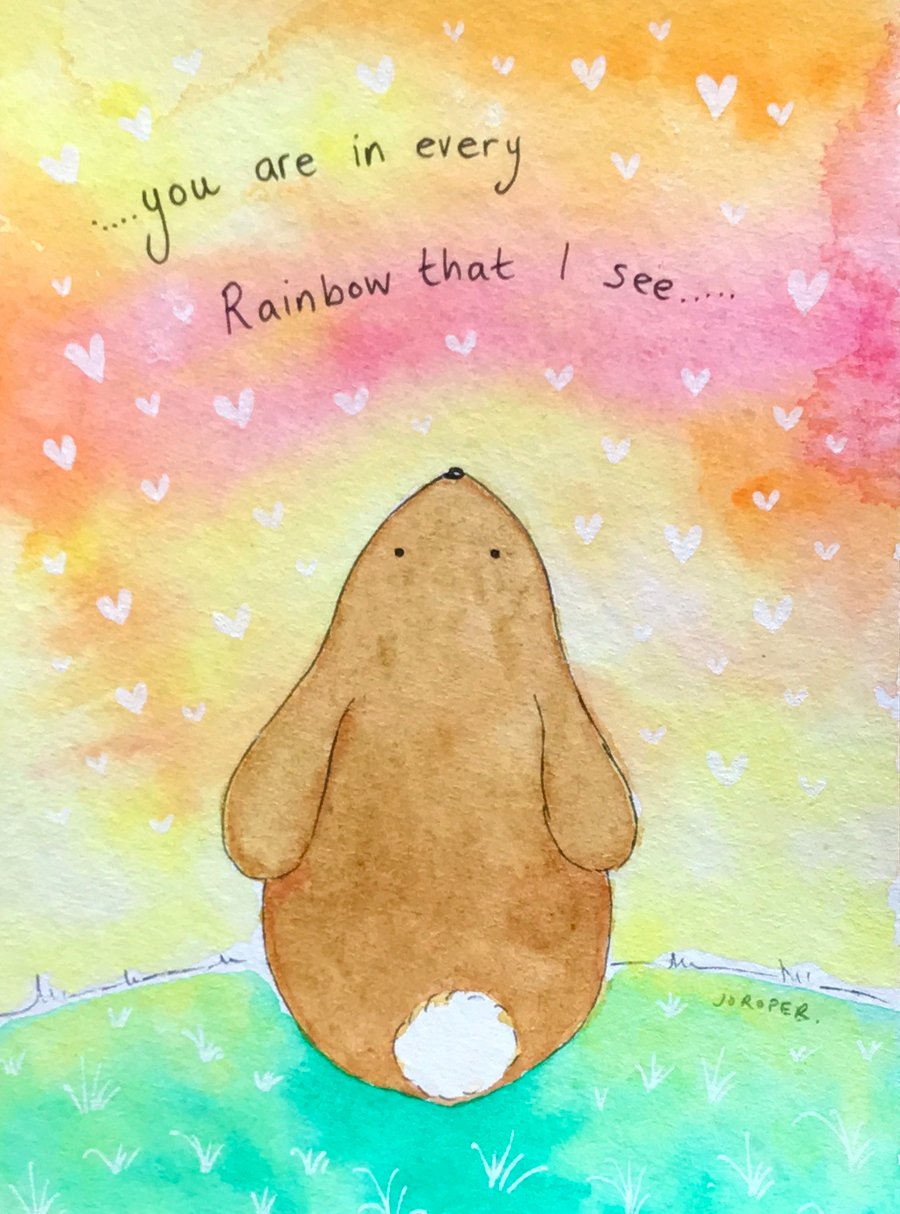 .....you are in every
Rainbow that I see.....
JO ROPER.